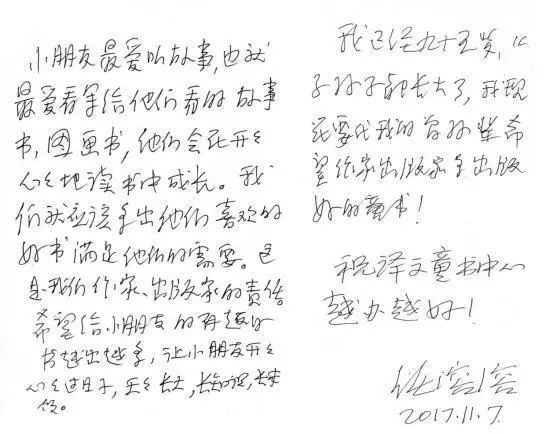 小朋友最爱听故事,也就
最爱看写给他们看的故事
书,图画书,他们会在开々
心々地读书中成长。我
们就应该多出他们喜欢的
好书满足他们的需要。这
是我们作家、出版家的责任。
希望给小朋友的有趣的
书越出越多,让小朋友开々
心々过日子,天々长大,长知识,长本
领。
我已经九十五岁,儿
子孙子都长大了,我现
在要代我的曾孙辈希
望作家出版家多出版
好的童书!
祝译文童书中心
越办越好!
任溶溶
2017.11.7.